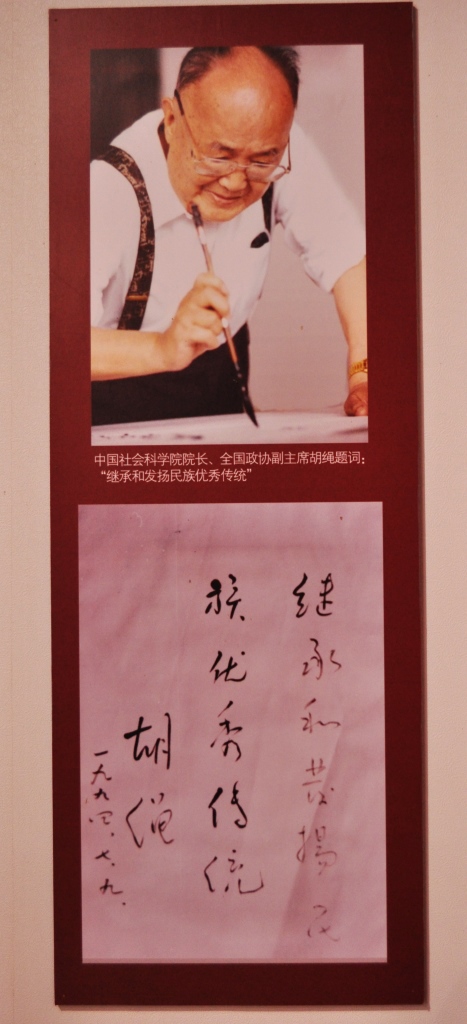 中国社会科学院院长、全国政协副主席胡绳题词：
“继承和发扬民族优秀传统”
继承和发揚民
族优秀传统
胡绳
一九九四、七、九.